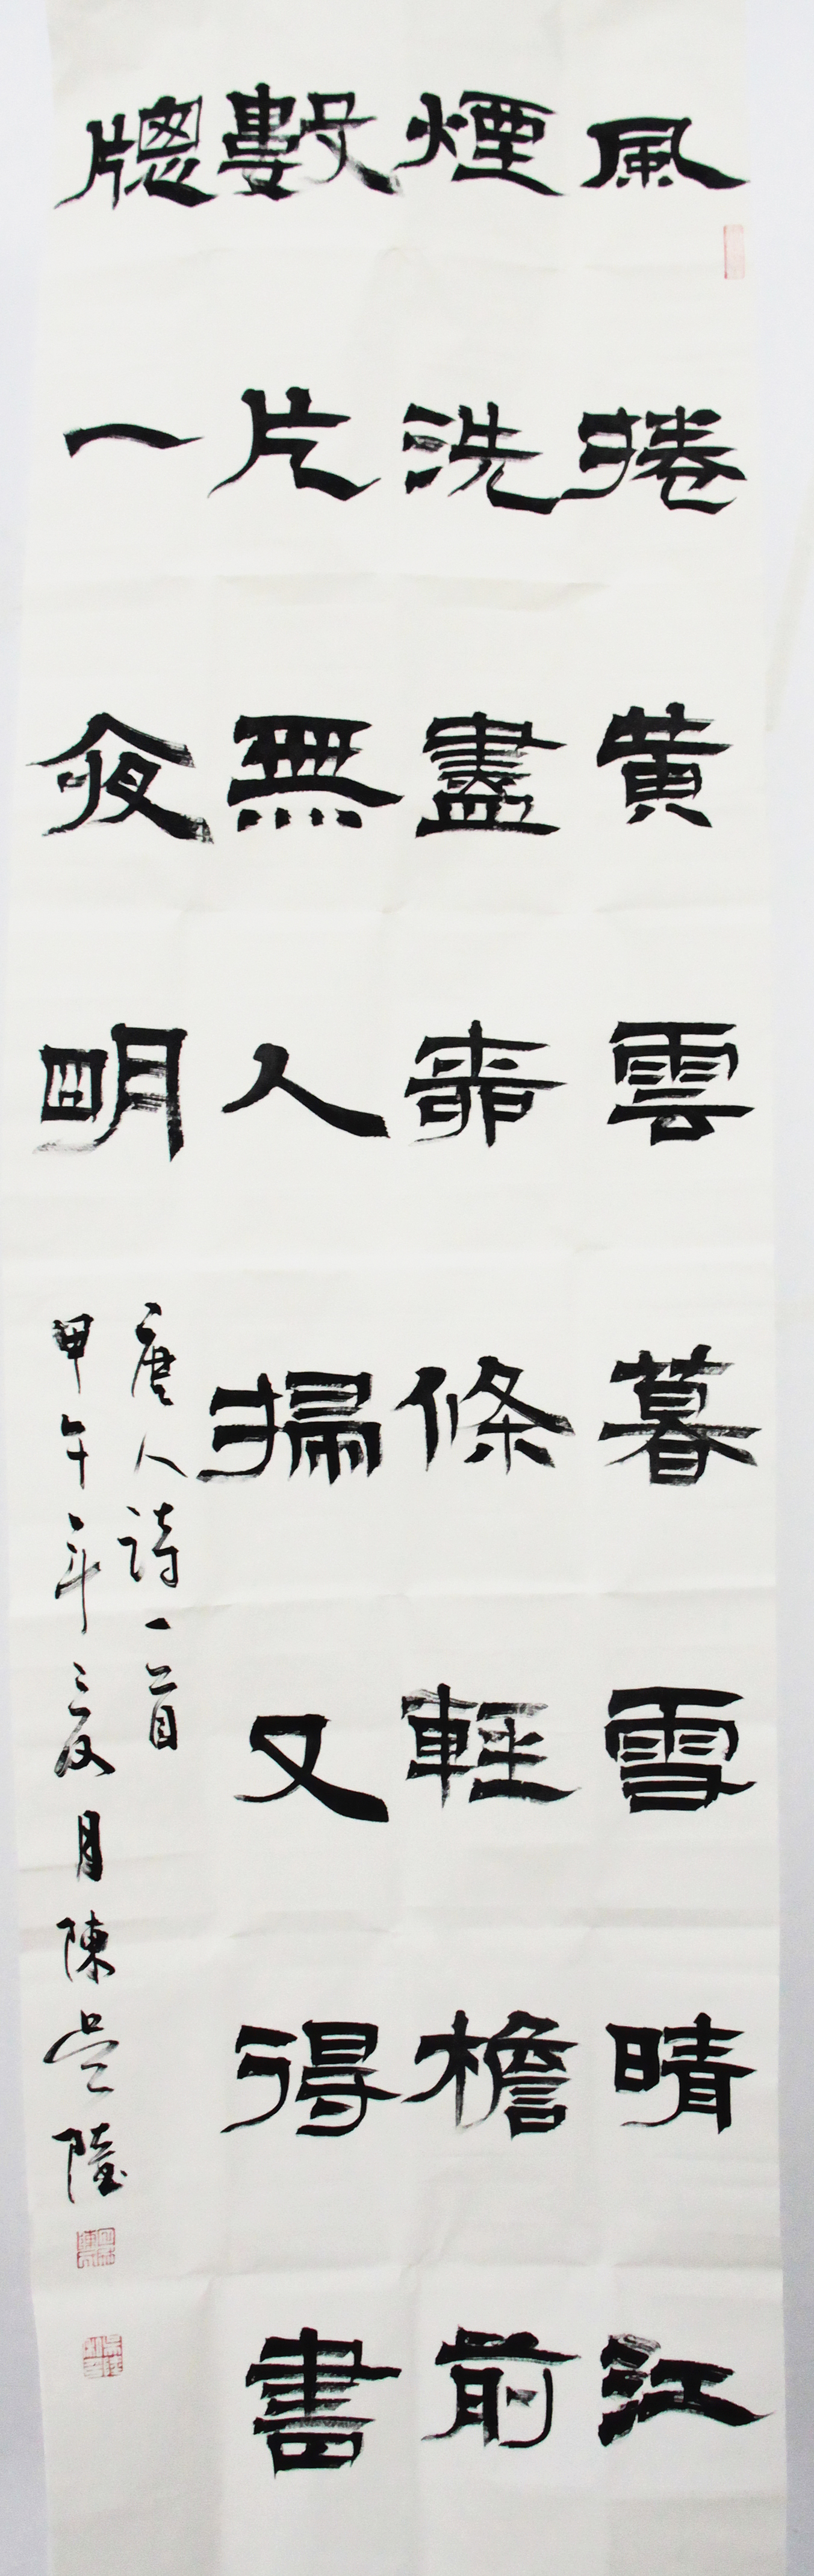 風捲黄雲暮雪晴江
煙洗盡柳條輕檐前
數片無人掃又得書
牕一夜明
唐人詩一首
甲午年夏月陳